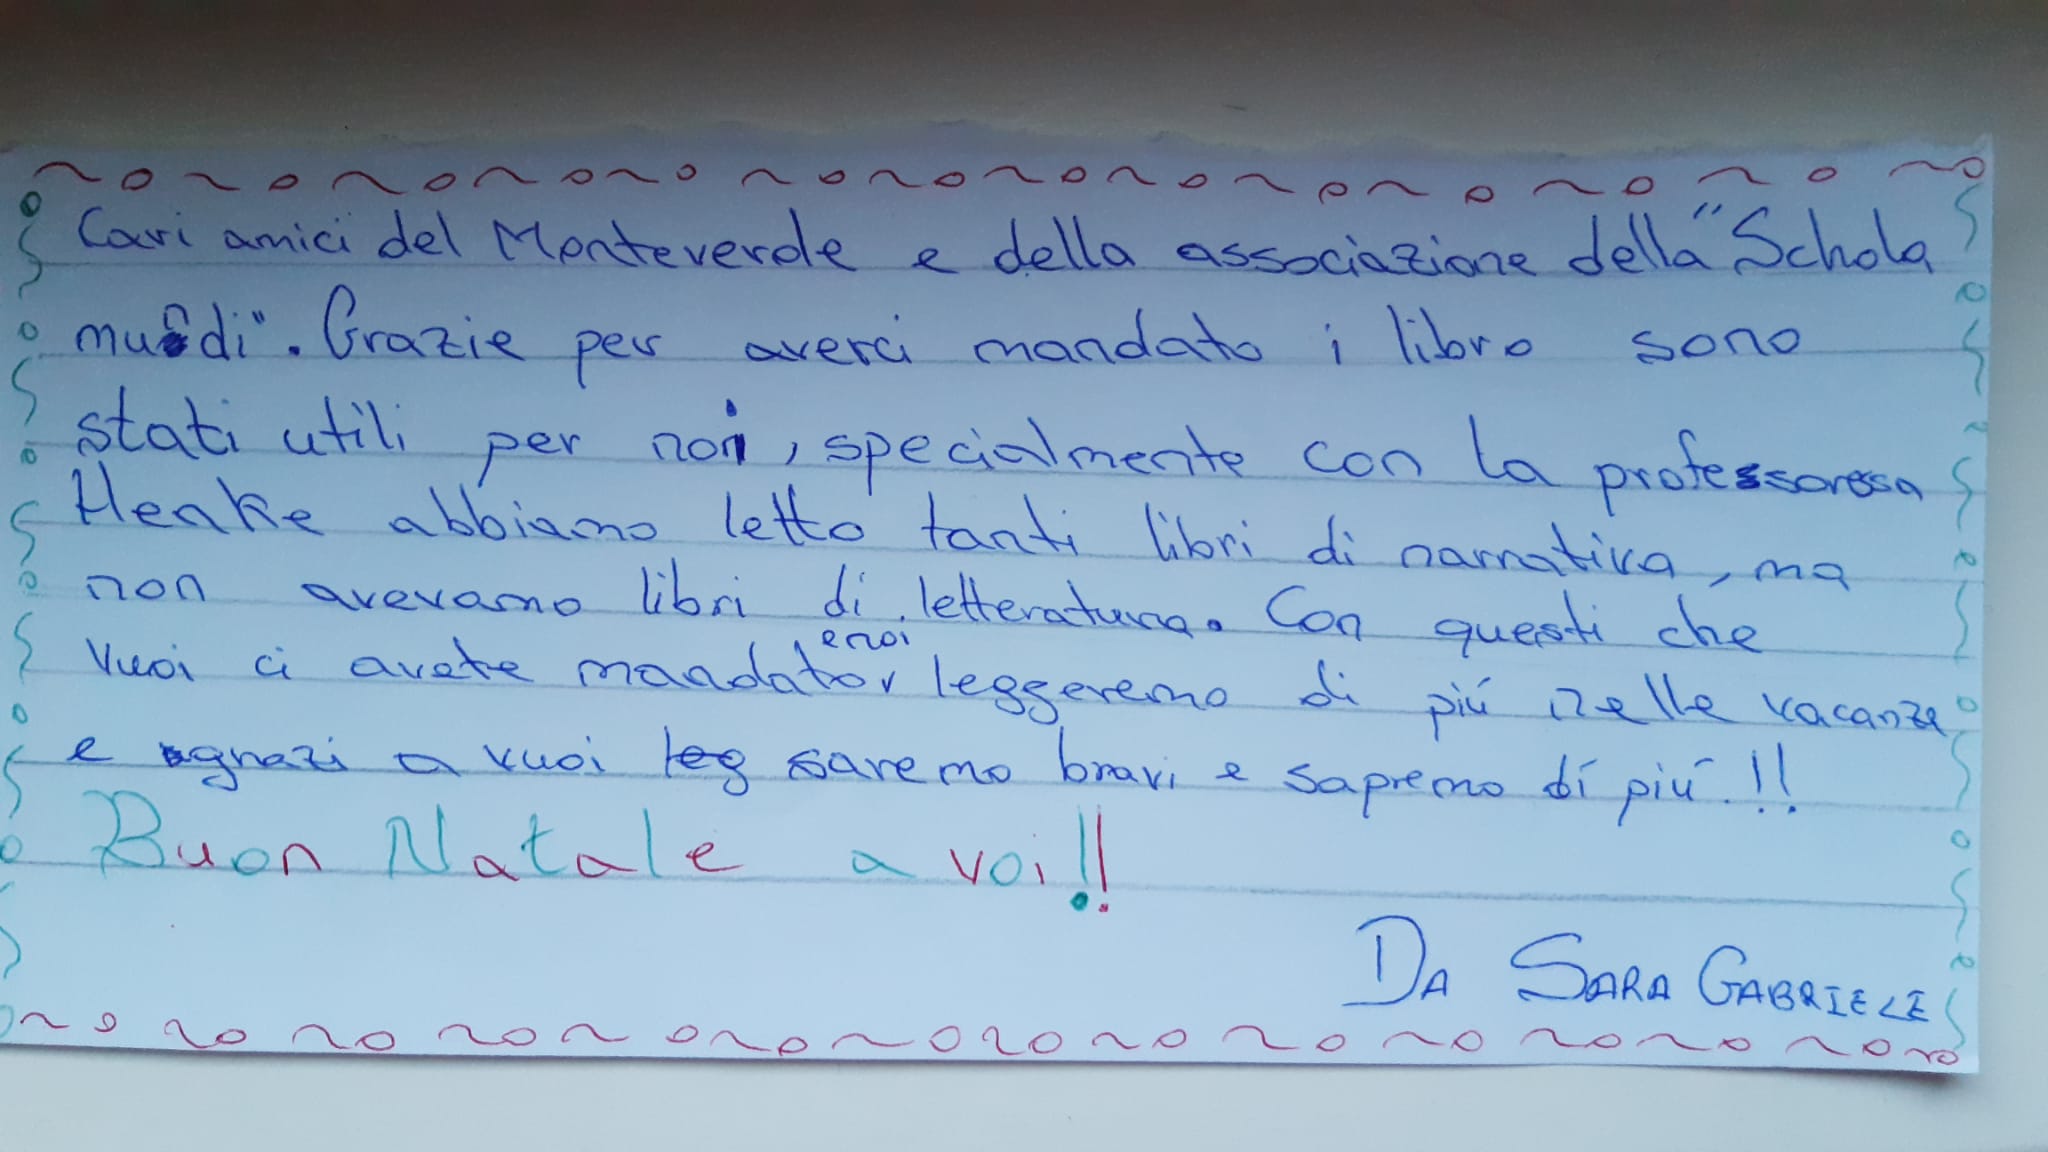 Cari amici del Monteverde e della associazione della "Schola
mundi". Grazie per averci mandato i libro sono
stati utili per noi, specialmente con la professoressa
Henke abbiamo letto tanti libri di narrativa, ma
non avevamo libri di letteratura. Con questi che
vuoi ci avete mandato enoi leggeremo di più nelle vacanze
e gnazi a vuoi leg saremo bravi e sapremo di più!!
Buon Natale a voi!!
DA SARA GABRIELE